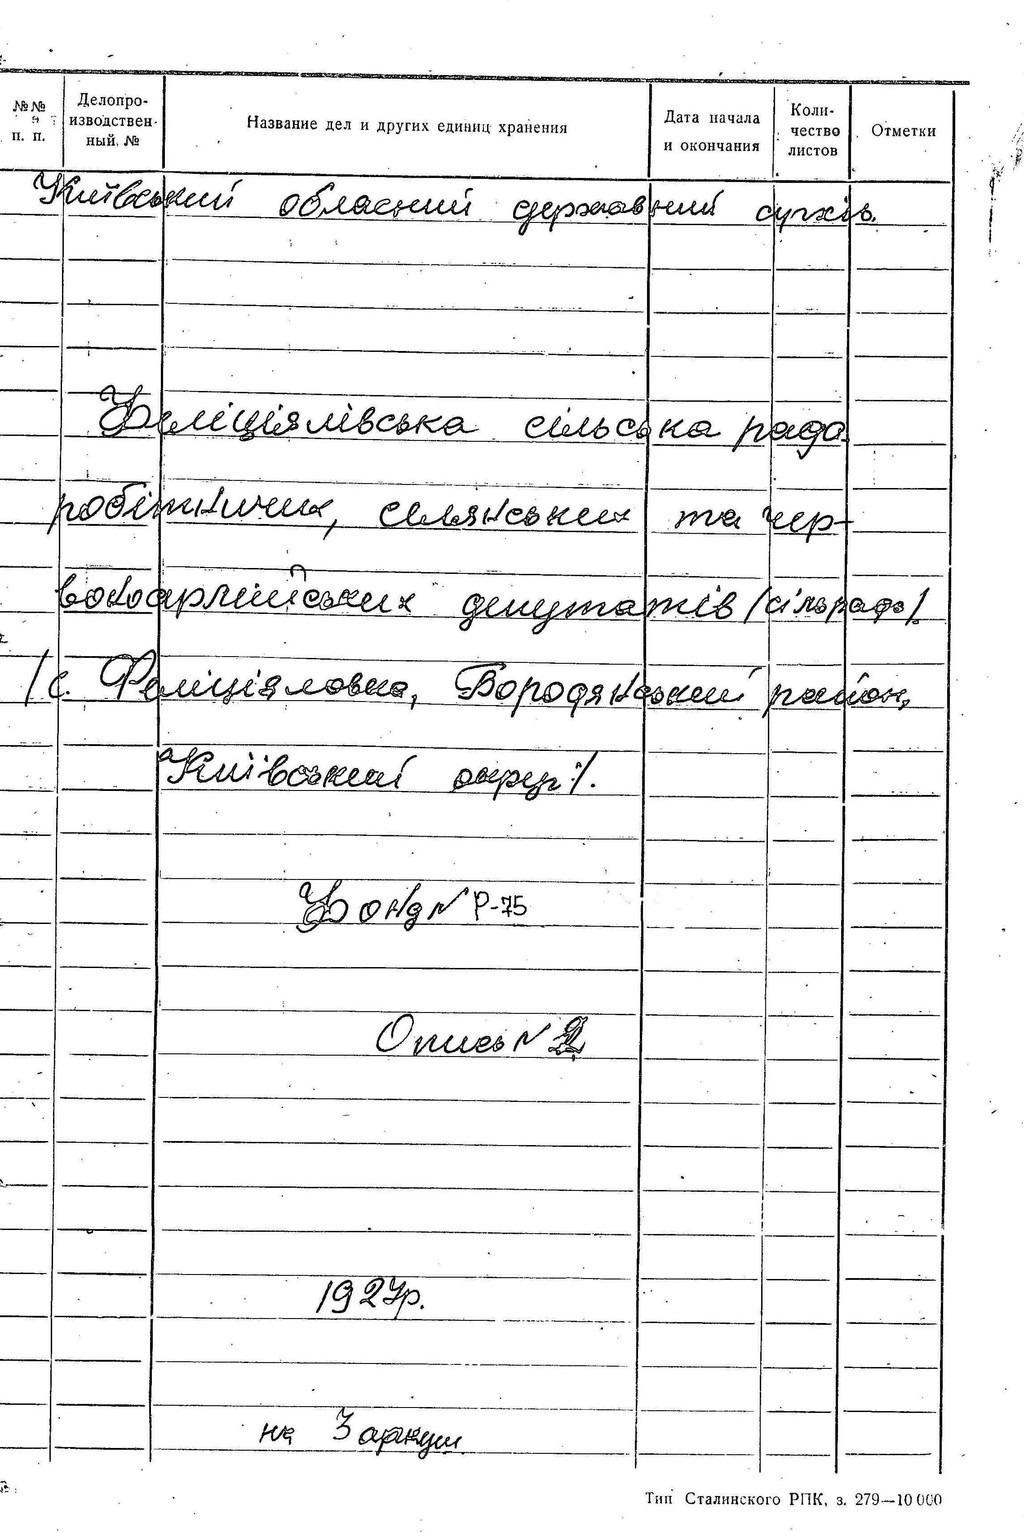 №№ п. п. Делопро-изводствен-ный. № Название дел и других единиц хранения Дата начала и окончания Коли-чество листов Отметки
Київський обласний державний архів.
Феліціялівська сільська рада
робітничих, селянських та чер-
воноармійських депутатів /сільрада/.
/с. Феліціяловка, Бородянський район,
Київський округ/.
Фонд № Р-75
Опись №
1927р.
на 3 аркуш
Тип Сталинского РПК, з. 279—10 000